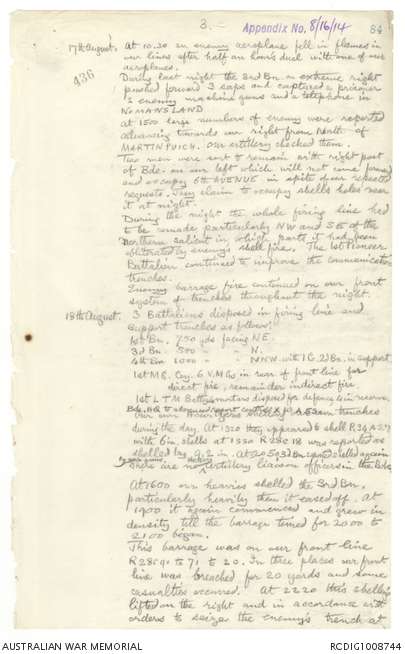 3. —
Appendix No. 8/16/14
84
436
17th August. At 10.30 an enemy aeroplane fell in flames in
our lines after half an hour's duel with one of our
aeroplanes.
During last night the 3rd Bn. on extreme right
pushed forward 3 saps and captured a prisoner
2 enemy machine guns and a telephone in
NO MANS LAND
At 1500 large numbers of enemy were reported
advancing towards our right from North of
MARTINPUICH. Our artillery checked them.
Two men were sent to remain with right post
of Bde. on our left which will not come forward
and occupy 6th AVENUE in spite of our repeated
requests. They claim to occupy shells holes near
it at night.
During the night the whole firing line had
to be remade particularly NW and SE of the
Northern salient in which parts it had been
obliterated by enemy's shell fire. The 1st Pioneer
Battalion continued to improve the communication
trenches.
Enemy barrage fire continued on our front
system of trenches throughout the night.
18th August. 3 Battalions disposed in firing line and
support trenches as follows:
1st Bn. 750 yds facing NE.
3rd Bn. 500 " " N.
4th Bn 1000 " " NNW with 1 C. 2nd Bn. in support
1st M.G. Coy. 6 V.M.Gs in rear of front line for
direct fire, remainder indirect fire.
1st L T M Battery mortars disposed for defence & in reserve.
Our own heavies shelling our trenches
during the day. At 1320 they appeared to shell R 34 A 27
with 6 in. shells at 1330 R28C 18 was reported as
shelled by 9.2 in. At 2050 3rd Bn report shelled again
by own guns.
There are no artillery liaison officers in the Bde.
At 1600 our heavies shelled the 3rd Bn.
particularly heavily then it eased off. At
1900 it again commenced and grew in
density till the barrage timed for 2000 to
2100 began.
This barrage was on our front line
R28C91 to 71 to 20. In three places our front
line was breached for 20 yards and some
casualties occurred. At 2220 this shelling
lifted on the right and in accordance with
orders to seize the enemy's trench at
AUSTRALIAN WAR MEMORIAL
RCDIG1008744